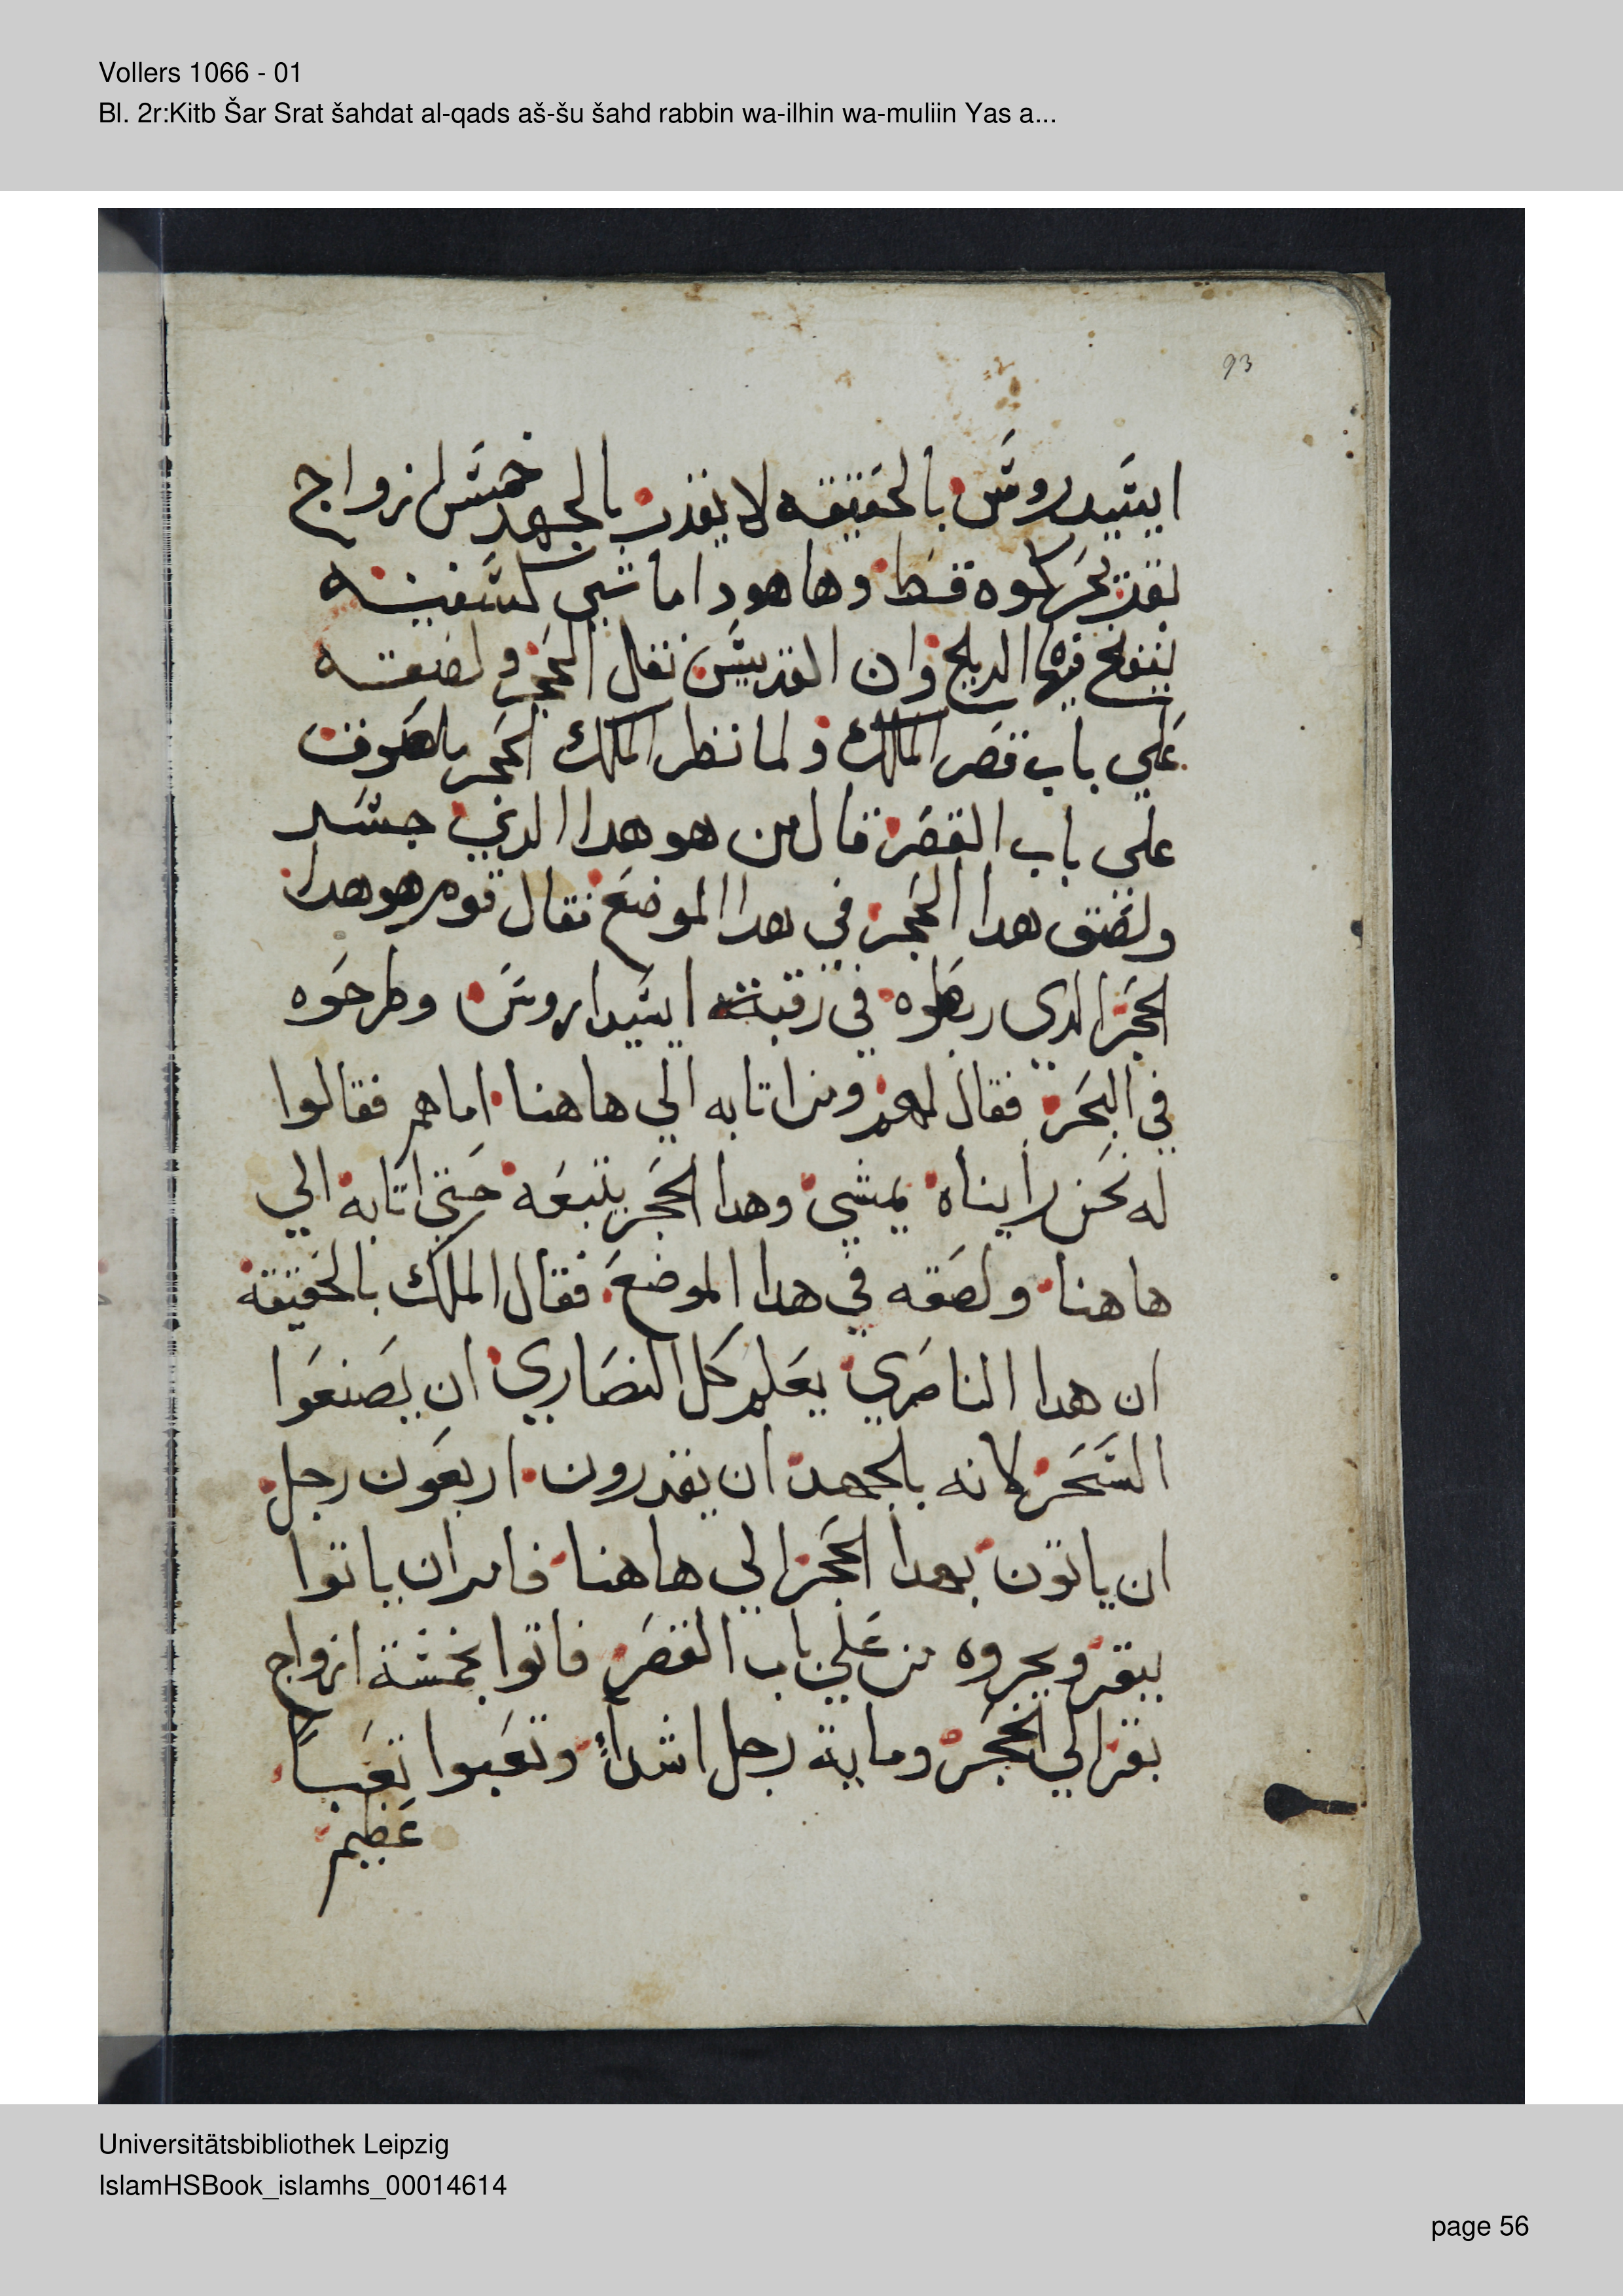 Vollers 1066 - 01
Bl. 2r:Kitb Šar Srat šahdat al-qads aš-šu šahd rabbin wa-ilhin wa-muliin Yas a...
93
ايسيدروس بالحقيقه لا يقدر بالجهد خمس ازواج
بقر يحركوه قط وها هودا ماشي كسفينه
ينفخ فيها الريح وان القديس نقل الحجر ولصقه
علي باب قصر الملك ولما نظر الملك الحجر ملصوق
علي باب القصر قال من هو هدا الدي جسر
ولصق هدا الحجر في هدا الموضع فقال قوم هو هدا
الحجر الدي ربطوه في رقبة ايسيداروس وطرحوه
في البحر فقال لهم ومن اتا به الي هاهنا اما هم فقالوا
له نحن رايناه يمشي وهدا الحجر يتبعه حتي اتا به الي
هاهنا ولصقه في هدا الموضع فقال الملك بالحقيقة
ان هدا الناصري يعلم كل النصاري ان يصنعوا
السحر لانه بالجهد ان يقدرون اربعون رجل
ان ياتون بهدا الحجر الي هاهنا فامر ان ياتوا
ببقر ويجروه من علي باب القصر فاتوا بخمسة ازواج
بقر الي الحجر وماية رجل اشداء وتعبوا تعباً
عظيم
Universitätsbibliothek Leipzig
IslamHSBook_islamhs_00014614
page 56